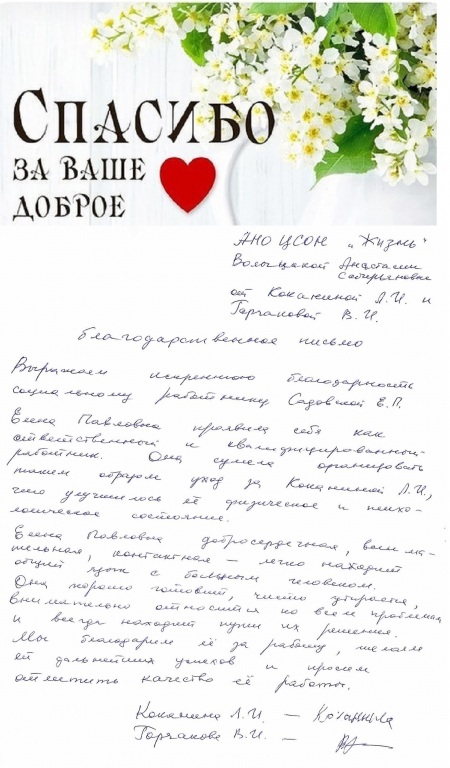 СПАСИБО
ЗА ВАШЕ
ДОБРОЕ
АНО ЦСОН „Жизнь"
Анастасии
от Коканиной Л.И. и
Горчаковой В.И.
благодарственное письмо
Выражаем искреннюю благодарность
социальному работнику Садовской Е.П.
Елена Павловна проявила себя как
ответственный и квалифицированный
работник. Она сумела организовать
таким образом уход за Коканиной Л.И.,
что улучшилось её физическое и психо-
логическое состояние.
Елена Павловна добросердечная, внима-
тельная, контактная – легко находит
общий язык с больным человеком.
Она хорошо готовит, чисто убирается,
внимательно относится ко всем проблемам
и всегда находит пути их решения.
Мы благодарим её за работу, желаем
ей дальнейших успехов и просим
отметить качество её работы.
Коканина Л.И. –
Горчакова В.И. –